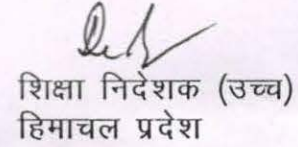 शिक्षा निदेशक (उच्च)
हिमाचल प्रदेश